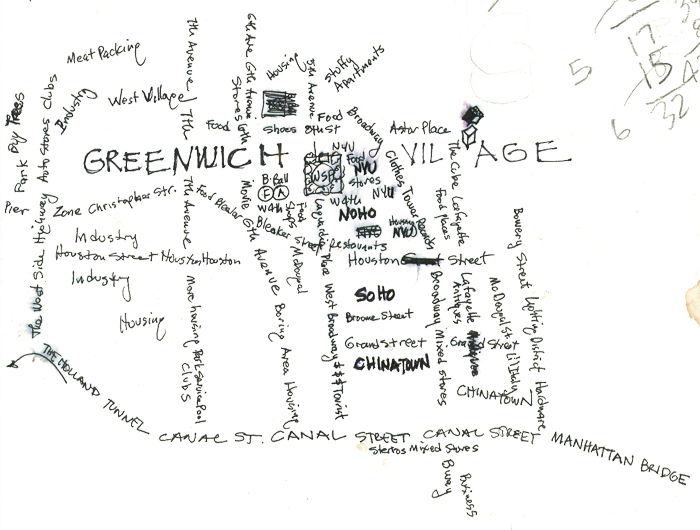 Meat Packing
West Village
Industry
7th Avenue 7th
7th Avenue
6th Ave 6th Avenue
Stores 6th
Housing
5th Avenue
Stuffy
Apartments
Food
Shoes
8th St
Food
Broadway
Astor Place
GREENWICH VILLAGE
NYU
Food
WSP
NYU
stores
NYU
W4th
B-Ball
F A
W4th
Movie
Shops
Food
NOHO
Housing
NYU
Clothes Tower Records
The Cube Lafayette
Food places
Park
Trees
Pier
The West Side Highway Auto Stores Clubs
Zone Christopher Str.
Food Bleeker 6th Avenue
Bleaker Street Restaurants
McDougal
Laguardia Place West Broadway $$$ Tourist
Industry
Houston Street Houston, Houston
Houston Street
Industry
Housing
More housing
Pool
Clubs
Boring Area Housing
SoHo
Broome Street
Grand street
Grand Street
CHINATOWN
Broadway Mixed stores
Lafayette
Antiques
McDougal St.
Lil Italy
Bowery Street Lighting District Hardware
CHINATOWN
THE HOLLAND TUNNEL
CANAL ST. CANAL STREET CANAL STREET MANHATTAN BRIDGE
Stereos Mixed Stores
Business
17
5
15
6
32